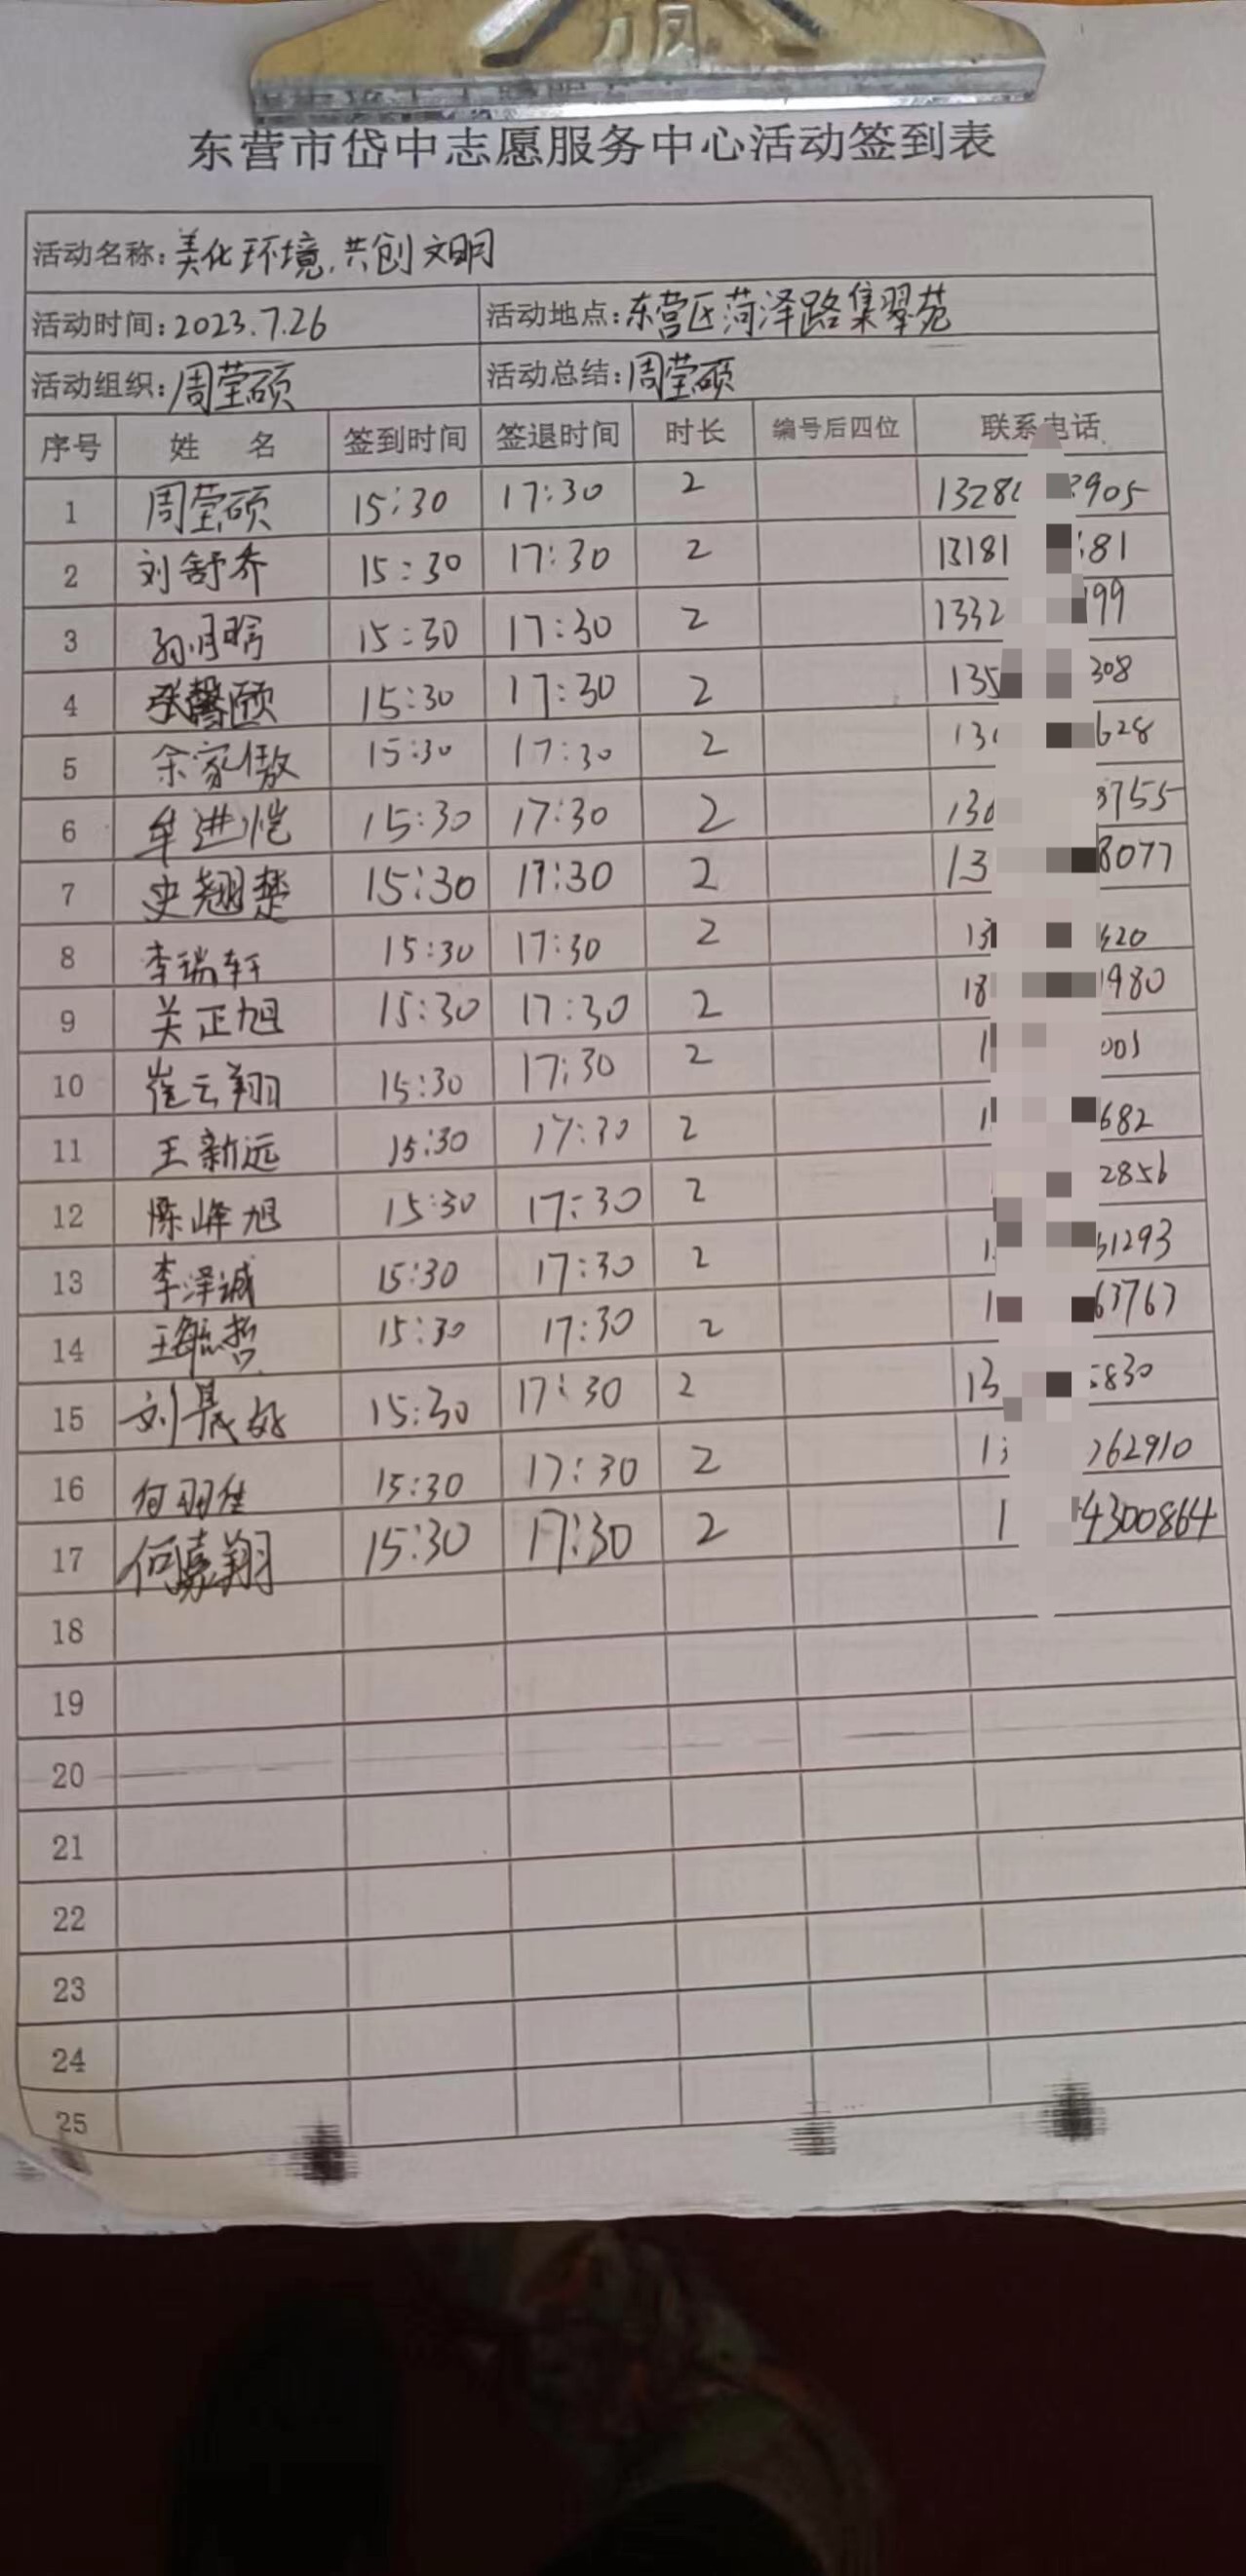 东营市岱中志愿服务中心活动签到表
活动名称:美化环境,共创文明
活动时间:2023.7.26 活动地点:东营区菏泽路集翠苑
活动组织:周莹硕 活动总结:周莹硕
序号 姓 名 签到时间 签退时间 时长 编号后四位 联系电话
1 周莹硕 15:30 17:30 2 1328 8905
2 刘舒乔 15:30 17:30 2 13181 681
3 孙明晗 15:30 17:30 2 1332 199
4 张馨颐 15:30 17:30 2 135 308
5 余家傲 15:30 17:30 2 13 628
6 牟进恺 15:30 17:30 2 130 8755
7 史翘楚 15:30 17:30 2 13 8077
8 李瑞轩 15:30 17:30 2 13 620
9 关正旭 15:30 17:30 2 18 1980
10 崔云翔 15:30 17:30 2 1 001
11 王新远 15:30 17:30 2 1 682
12 陈峰旭 15:30 17:30 2 2856
13 李泽诚 15:30 17:30 2 1 51293
14 王毓哲 15:30 17:30 2 1 63763
15 刘晟 15:30 17:30 2 13 5830
16 何羽佳 15:30 17:30 2 13 262910
17 何嘉翔 15:30 17:30 2 1 4300864
18
19
20
21
22
23
24
25